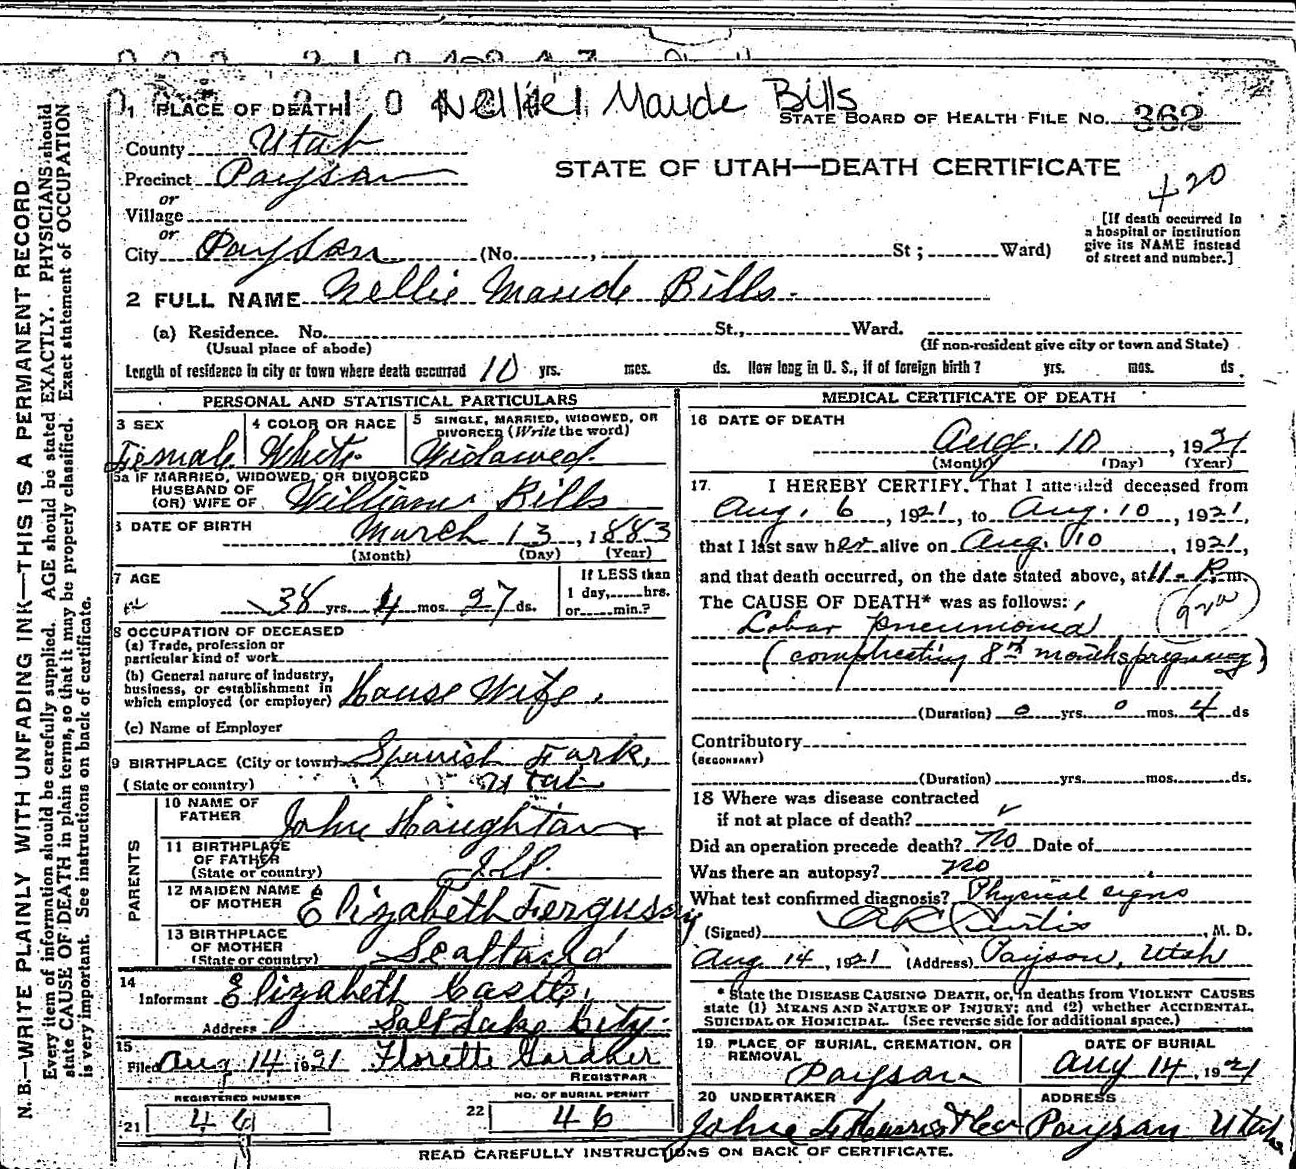 Nellie Maude Bills
1 PLACE OF DEATH
STATE BOARD OF HEALTH FILE NO. 362
County Utah
STATE OF UTAH—DEATH CERTIFICATE
Precinct Payson
420
or
Village
or
[If death occurred in
a hospital or institution
give its NAME instead
of street and number.]
City Payson (No. , St ; Ward)
2 FULL NAME Nellie Maude Bills.
(a) Residence. No. St., Ward.
(Usual place of abode) (If non-resident give city or town and State)
Length of residence in city or town where death occurred 10 yrs. mos. ds. How long in U. S., if of foreign birth? yrs. mos. ds.
PERSONAL AND STATISTICAL PARTICULARS
3 SEX Female
4 COLOR OR RACE White
5 SINGLE, MARRIED, WIDOWED, OR
DIVORCED (Write the word)
Widowed.
5a IF MARRIED, WIDOWED, OR DIVORCED
HUSBAND OF
(OR) WIFE OF William Bills
6 DATE OF BIRTH March 13, 1883
(Month) (Day) (Year)
7 AGE
38 yrs. 4 mos. 27 ds.
If LESS than
1 day, hrs.
or min.?
8 OCCUPATION OF DECEASED
(a) Trade, profession or
particular kind of work
(b) General nature of industry,
business, or establishment in
which employed (or employer) House Wife.
(c) Name of Employer
9 BIRTHPLACE (City or town) Spanish Fork,
(State or country) Utah
PARENTS
10 NAME OF
FATHER John Houghton
11 BIRTHPLACE
OF FATHER
(State or country) Ill.
12 MAIDEN NAME
OF MOTHER Elizabeth Ferguson
13 BIRTHPLACE
OF MOTHER
(State or country) Scotland
14
Informant Elizabeth Castle,
Address Salt Lake City.
15
Filed Aug 14 1921 Florette Gardner
REGISTRAR
REGISTERED NUMBER
21 44
NO. OF BURIAL PERMIT
22 46
MEDICAL CERTIFICATE OF DEATH
16 DATE OF DEATH
Aug. 10, 1921
(Month) (Day) (Year)
17. I HEREBY CERTIFY, That I attended deceased from
Aug. 6, 1921, to Aug. 10, 1921,
that I last saw her alive on Aug. 10, 1921,
and that death occurred, on the date stated above, at 11 - P. m.
The CAUSE OF DEATH* was as follows:
Lobar pneumonia
(complicating 8th months pregnancy)
(Duration) 0 yrs. 0 mos. 4 ds
Contributory
(SECONDARY)
(Duration) yrs. mos. ds.
18 Where was disease contracted
if not at place of death?
Did an operation precede death? No Date of
Was there an autopsy? no
What test confirmed diagnosis? Physical signs
(Signed) Curtis, M. D.
Aug 14, 1921 (Address) Payson, Utah
* State the DISEASE CAUSING DEATH, or, in deaths from VIOLENT CAUSES
state (1) MEANS AND NATURE OF INJURY; and (2) whether ACCIDENTAL,
SUICIDAL OR HOMICIDAL. (See reverse side for additional space.)
19 PLACE OF BURIAL, CREMATION, OR
REMOVAL
Payson
DATE OF BURIAL
Aug 14, 1921
20 UNDERTAKER
John
ADDRESS
Payson Utah
READ CAREFULLY INSTRUCTIONS ON BACK OF CERTIFICATE.
N. B.—WRITE PLAINLY WITH UNFADING INK—THIS IS A PERMANENT RECORD
Every item of information should be carefully supplied. AGE should be stated EXACTLY. PHYSICIANS should
state CAUSE OF DEATH in plain terms, so that it may be properly classified. Exact statement of OCCUPATION
is very important. See instructions on back of certificate.